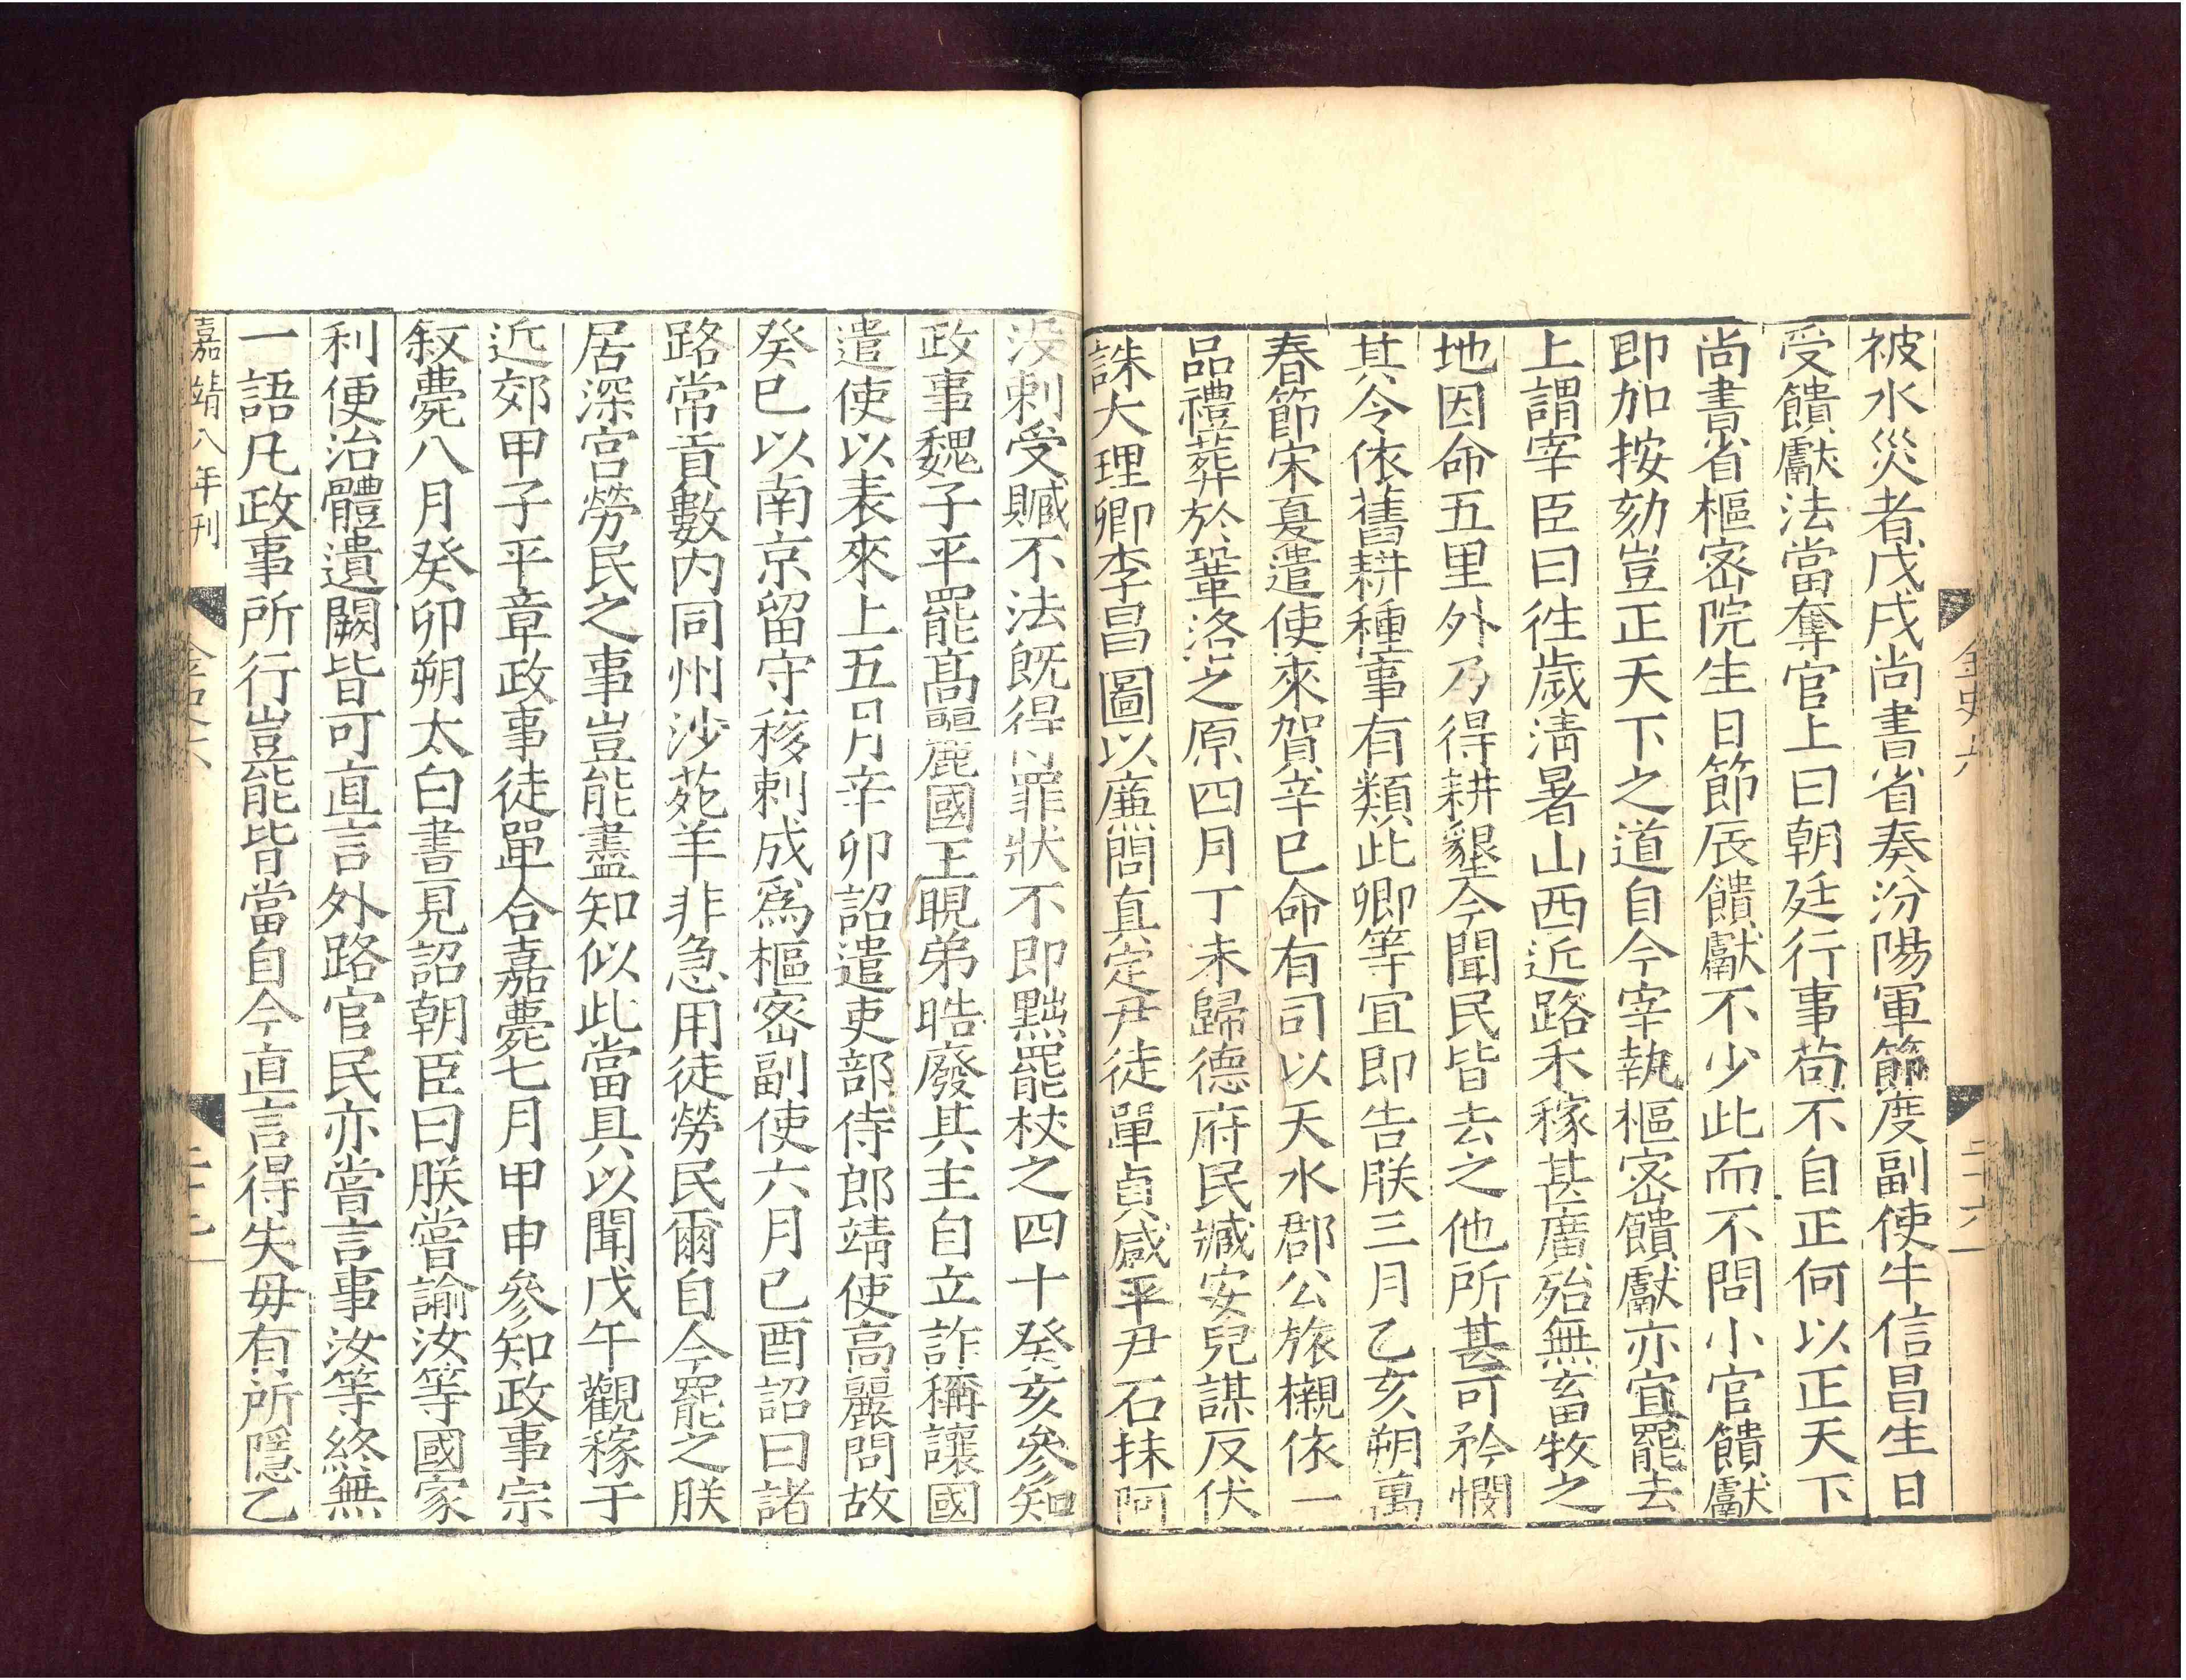 金史六
二十六
被水災者戊戌尚書省奏汾陽軍節度副使牛信昌生日
受饋獻法當奪官上曰朝廷行事苟不自正何以正天下
尚書省樞密院生日節辰饋獻不少此而不問小官饋獻
即加按劾豈正天下之道自今宰執樞密饋獻亦宜罷去
上謂宰臣曰徃歲清暑山西近路禾稼甚廣殆無畜牧之
地因命五里外乃得耕墾今聞民皆去之他所甚可矜憫
其令依舊耕種事有類此卿等宜即告朕三月乙亥朔萬
春節宋夏遣使來賀辛巳命有司以天水郡公旅櫬依一
品禮葬於鞏洛之原四月丁未歸德府民臧安兒謀反伏
誅大理卿李昌圖以廉問真定尹徒單貞咸平尹石抹阿
没剌受贓不法既得罪狀不即黜罷杖之四十癸亥參知
政事魏子平罷髙麗國王晛弟晧廢其主自立詐稱讓國
遣使以表來上五月辛卯詔遣吏部侍郎靖使高麗問故
癸巳以南京留守移剌成爲樞密副使六月己酉詔曰諸
路常貢數内同州沙苑羊非急用徒勞民爾自今罷之朕
居深宫勞民之事豈能盡知似此當具以聞戊午觀稼于
近郊甲子平章政事徒單合嘉薨七月甲申參知政事宗
敍薨八月癸卯朔太白晝見詔朝臣曰朕嘗諭汝等國家
利便治體遺闕皆可直言外路官民亦嘗言事汝等終無
一語凡政事所行豈能皆當自今直言得失毋有所隱乙
嘉靖八年刊
金史六